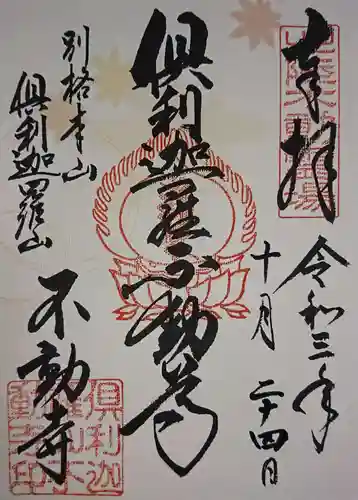 奉拝
令和三年
十月二十四日
倶利迦羅不動尊
別格本山
倶利迦羅山
不動寺